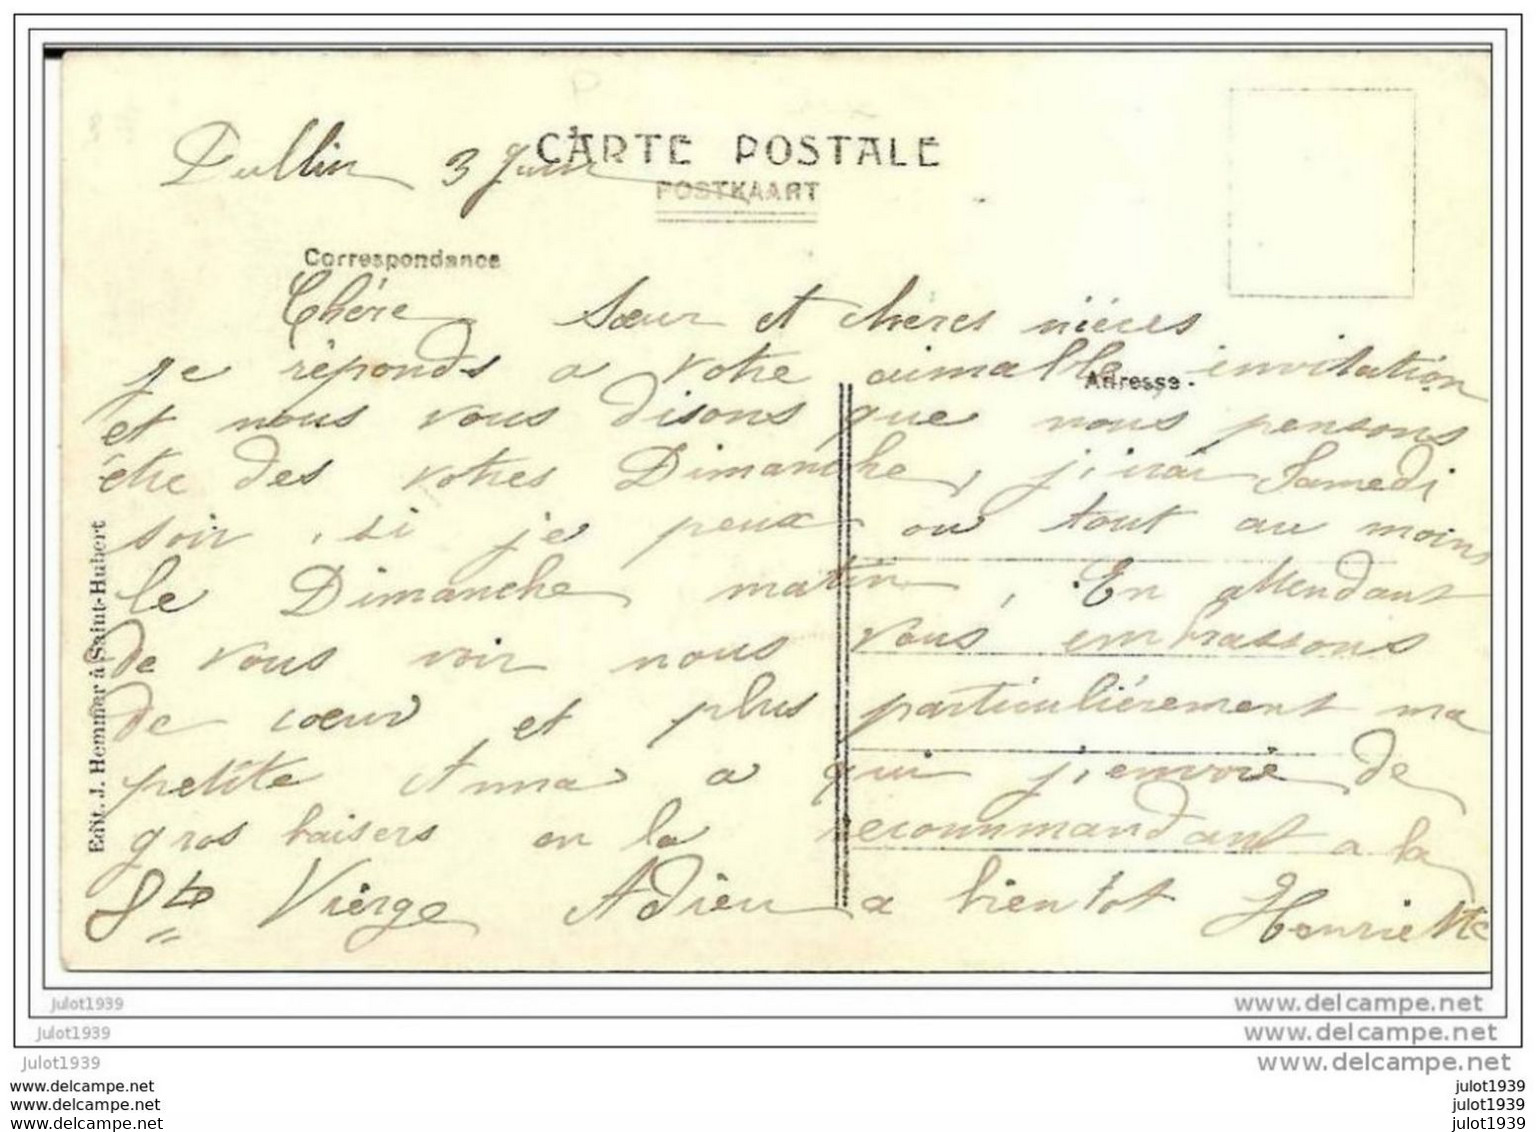 CARTE POSTALE
Pullin 3 Juin
POSTKAART
Correspondance
Chère Sœur et chères nièces
je réponds a votre aimable invitation
Adresse.
et nous vous disons que nous pensons
être des votres Dimanche, j'irai Samedi
soir, si je peux ou tout au moins
le Dimanche matin, En attendant
de vous voir nous vous embrassons
de cœur et plus particulièrement ma
petite Anna a qui j'envoie de
gros baisers en la recommandant a la
Ste Vièrge Adieu a bientot Henriette
Edit. J. Hemmer à Saint-Hubert
julot1939
www.delcampe.net
julot1939
www.delcampe.net
julot1939
www.delcampe.net
www.delcampe.net
julot1939
www.delcampe.net
julot1939
www.delcampe.net
julot1939